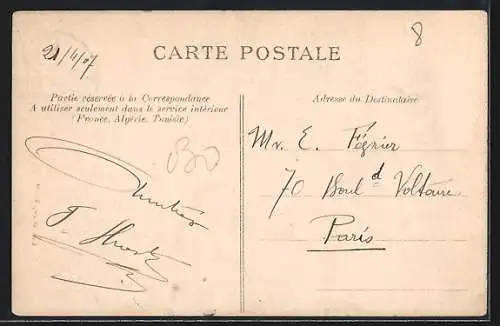 21/4/07
8
CARTE POSTALE
Partie réservée à la Correspondance
A utiliser seulement dans le service intérieur
(France, Algérie, Tunisie)
Adresse du Destinataire
Amitiés
F.
Mr. E.
70 Boul d Voltaire
Paris